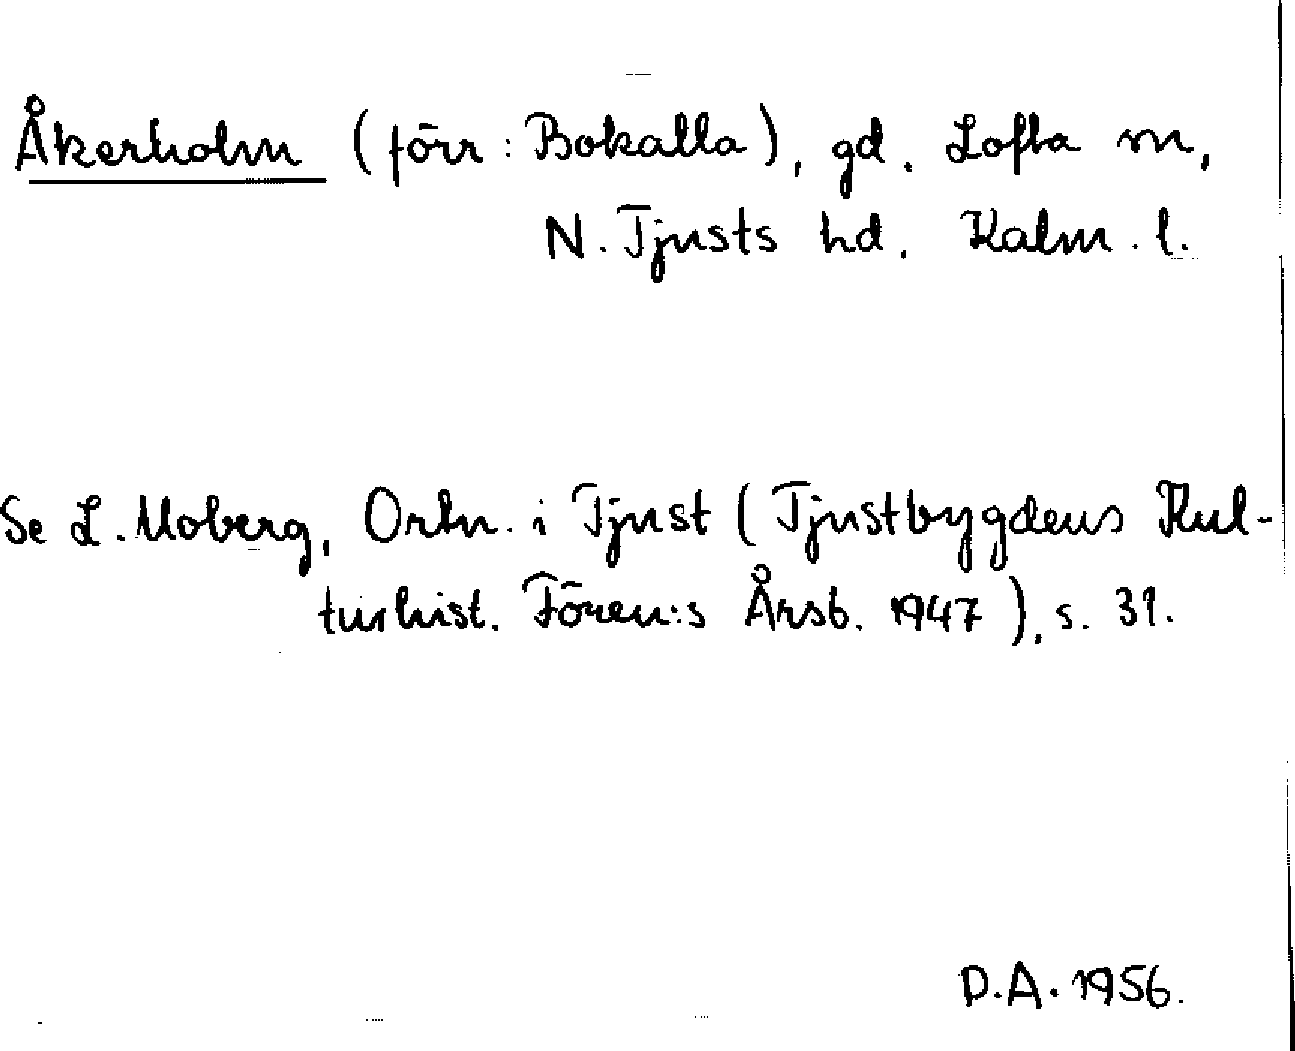 Åkerholm (förr: Bokalla), gd. Lofta sn,
N. Tjusts hd. Kalm. l.
Se L. Moberg, Ortn. i Tjust (Tjustbygdens Kul-
turhist. Fören:s Årsb. 1947), s. 31.
D.A. 1956.